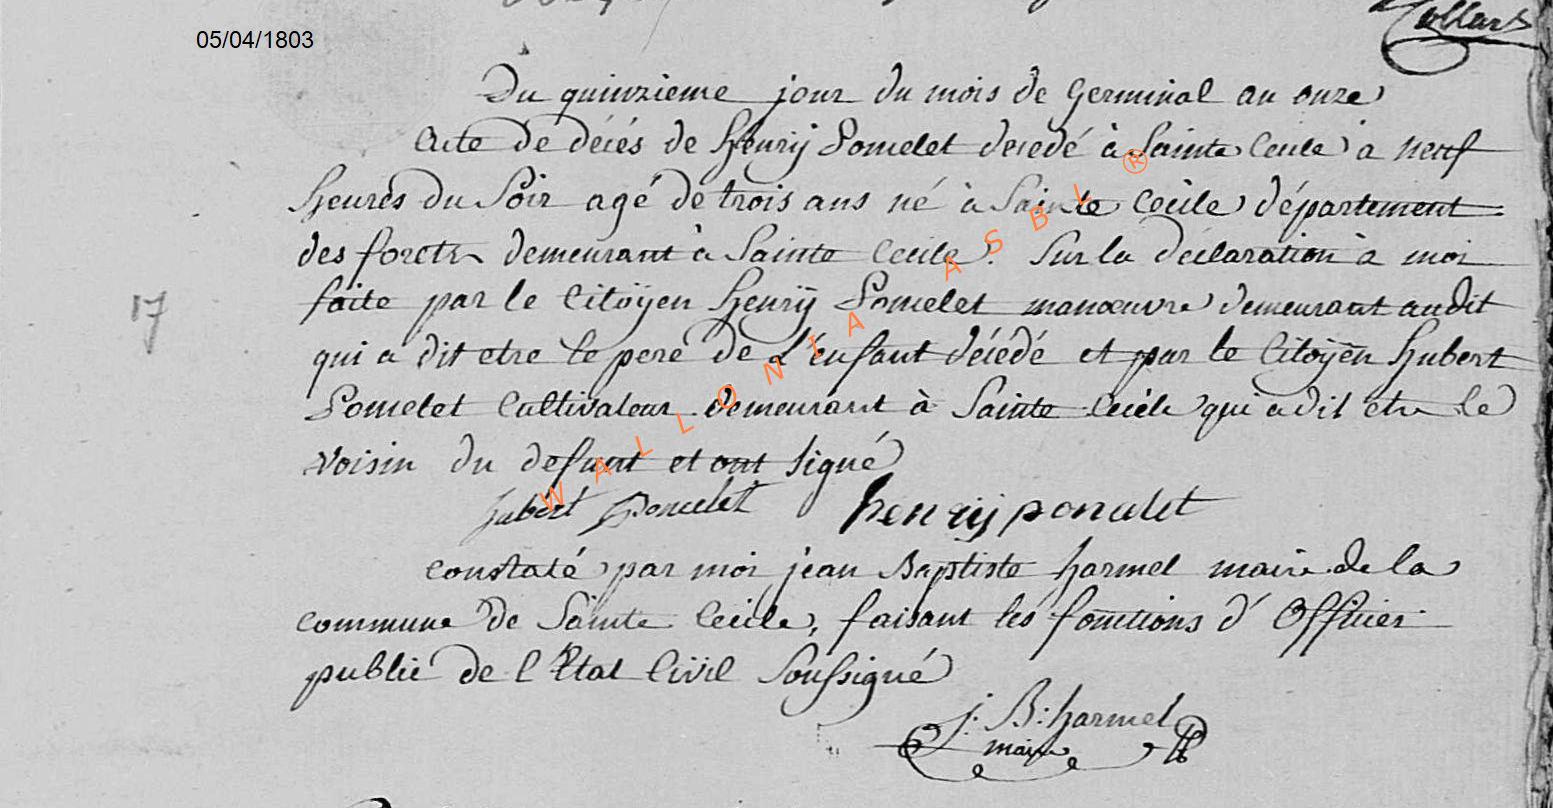 05/04/1803
Collard
Du quinzieme jour du mois de Germinal an onze
Acte de décés de henrÿ Poncelet decedé à Sainte Cecile à neuf
heures du Soir agé de trois ans né à Sainte Cecile département
des forets demeurant à Sainte Cecile. Sur la déclaration à moi
faite par le Citöÿen henrÿ Poncelet manœuvre demeurant audit
17
qui a dit etre le pere de L'enfant décédé et par le Citoÿen hubert
Poncelet Cultivateur demeurant à Sainte Cecile qui a dit etre le
voisin du defunt et ont signé
hubert Poncelet henrÿ poncelet
constaté par moi jean Baptiste harmel maire de la
commune de Sainte Cecile, faisant les fonctions d'Officier
public de l'Etat Civil Soussigné
J: B: harmel
maire
WALLONIA ASBL ®